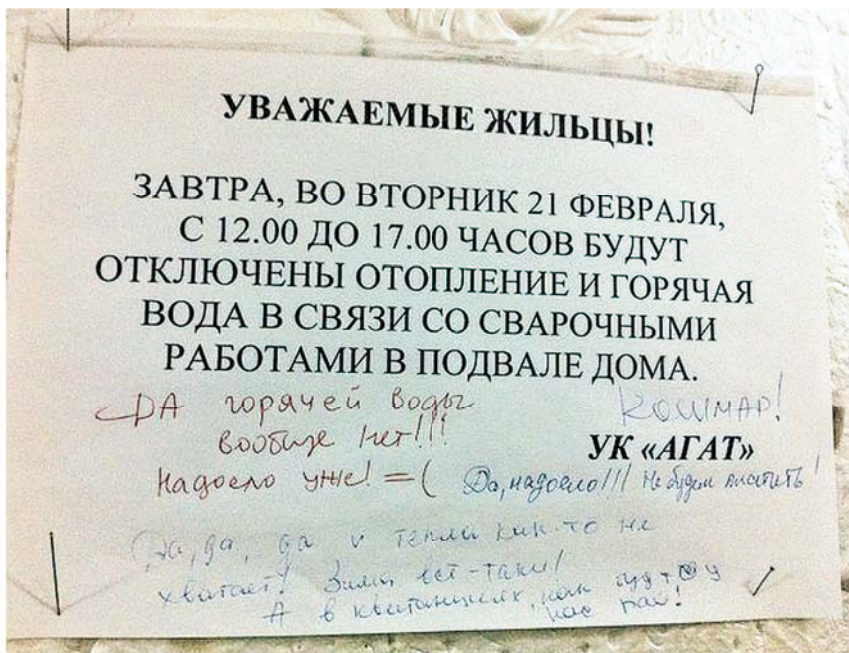 УВАЖАЕМЫЕ ЖИЛЬЦЫ!
ЗАВТРА, ВО ВТОРНИК 21 ФЕВРАЛЯ,
С 12.00 ДО 17.00 ЧАСОВ БУДУТ
ОТКЛЮЧЕНЫ ОТОПЛЕНИЕ И ГОРЯЧАЯ
ВОДА В СВЯЗИ СО СВАРОЧНЫМИ
РАБОТАМИ В ПОДВАЛЕ ДОМА.
ДА горячей воды
вообще нет!!!
Надоело уже! =(
КОШМАР!
УК «АГАТ»
Да, надоело!!! Не будем платить!
Да, да, да и тепла как-то не
хватает! Зима всё-таки!
А в квитанциях, как будто у
нас рай!